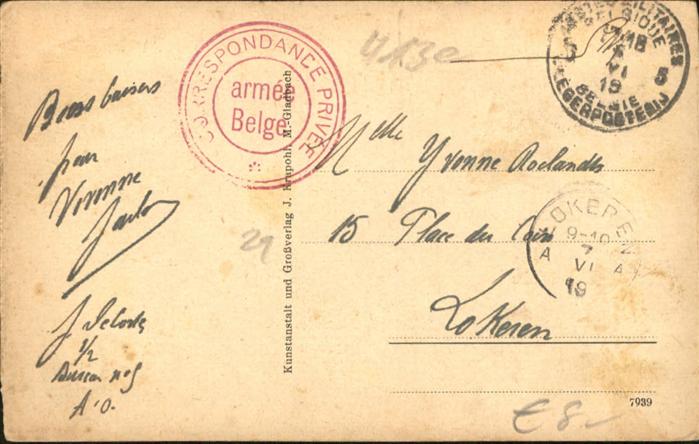 Bons baisers
pour
Yvonne
J Delorte
1/2
A.O.
CORRESPONDANCE PRIVÉE
armée
Belge
*
29
Kunstanstalt und Großverlag J. Krapohl, M.-Gladbach
POSTES MILITAIRES
BELGIQUE
VI
19
5 5
BELGIE
LEGERPOSTERIJ
Melle Yvonne Roelandts
15 Place du Coin
Lokeren
LOKEREN
9-10
A 7 A
VI
19
7939
€ 8-